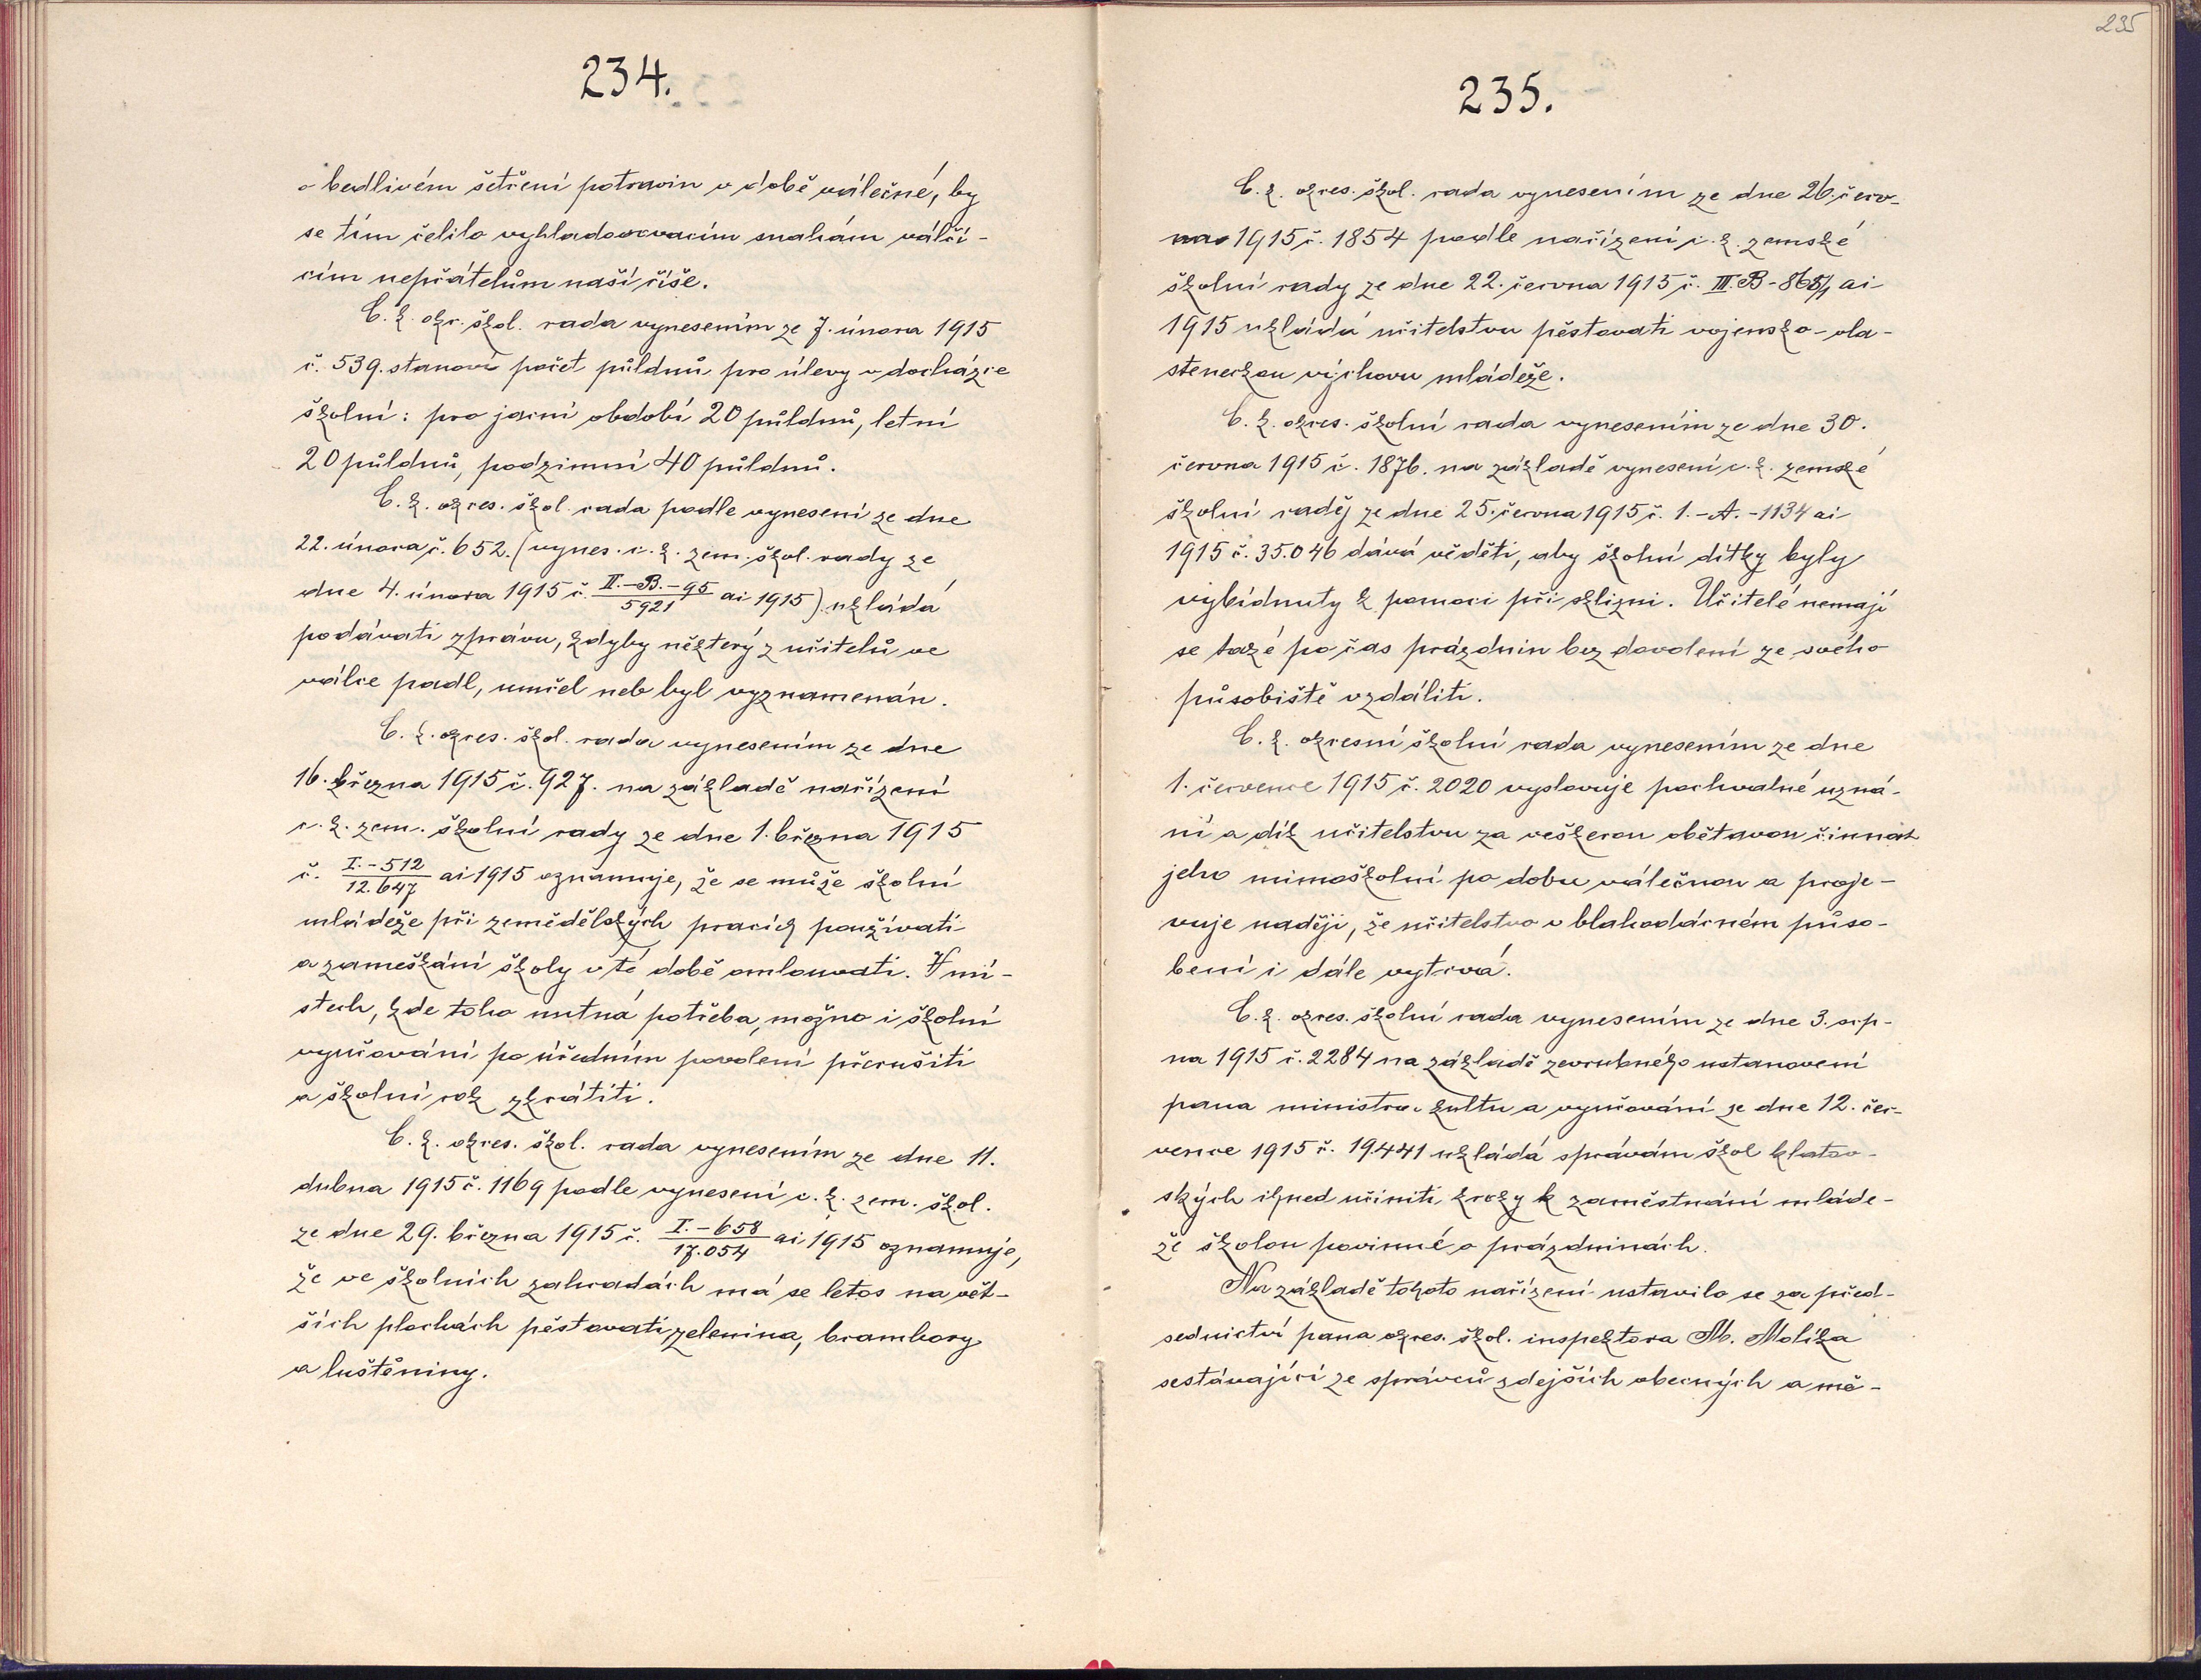 234.
o bedlivém šetření potravin v době válečné, by
se tím čelilo vyhladovovacím snahám válčí-
cím nepřátelům naší říše.
C. k. okr. škol. rada vynesením ze 7. února 1915
č. 539. stanoví počet půldnů pro úlevy v docházce
školní: pro jarní období 20 půldnů, letní
20 půldnů, podzimní 40 půldnů.
C. k. okres. škol. rada podle vynesení ze dne
22. února č. 652. (vynes. c. k. zem. škol. rady ze
dne 4. února 1915 č. II.-B.-95/5921 ai 1915) ukládá
podávati zprávu, kdyby některý z učitelů ve
válce padl, umřel neb byl vyznamenán.
C. k. okres. škol. rada vynesením ze dne
16. března 1915 č. 927. na základě nařízení
c. k. zem. školní rady ze dne 1. března 1915
č. I.-512/12.647 ai 1915 oznamuje, že se může školní
mládeže při zemědělských pracích používati
a zameškání školy v té době omlouvati. V mí-
stech, kde toho nutná potřeba, možno i školní
vyučování po úředním povolení přerušiti
a školní rok zkrátiti.
C. k. okres. škol. rada vynesením ze dne 11.
dubna 1915 č. 1169 podle vynesení c. k. zem. škol.
ze dne 29. března 1915 č. I.-658/17.054 ai 1915 oznamuje,
že ve školních zahradách má se letos na vět-
ších plochách pěstovati zelenina, brambory
a luštěniny.
235
235.
C. k. okres. škol. rada vynesením ze dne 26. červ-
na 1915 č. 1854 podle nařízení c. k. zemské
školní rady ze dne 22. června 1915 č. III. B-868/1 ai
1915 ukládá učitelstvu pěstovati vojensko-vla-
steneckou výchovu mládeže.
C. k. okres. školní rada vynesením ze dne 30.
června 1915 č. 1876. na základě vynesení c. k. zemské
školní raděj ze dne 25. června 1915 č. 1.-A.-1134 ai
1915 č. 35.046 dává věděti, aby školní dítky byly
vybídnuty k pomoci při sklizni. Učitelé nemají
se také po čas prázdnin bez dovolení ze svého
působiště vzdáliti.
C. k. okresní školní rada vynesením ze dne
1. července 1915 č. 2020 vyslovuje pochvalné uzná-
ní a dík učitelstvu za veškerou obětavou činnost
jeho mimoškolní po dobu válečnou a proje-
vuje naději, že učitelstvo v blahodárném půso-
bení i dále vytrvá.
C. k. okres. školní rada vynesením ze dne 3. srp-
na 1915 č. 2284 na základě zevrubného ustanovení
pana ministra kultu a vyučování ze dne 12. čer-
vence 1915 č. 19.441 ukládá správám škol klatov-
ských ihned učiniti kroky k zaměstnání mláde-
že školou povinné o prázdninách.
Na základě tohoto nařízení ustavilo se za před-
sednictví pana okres. škol. inspektora M. Malíka
sestávající ze správců zdejších obecných a mě-